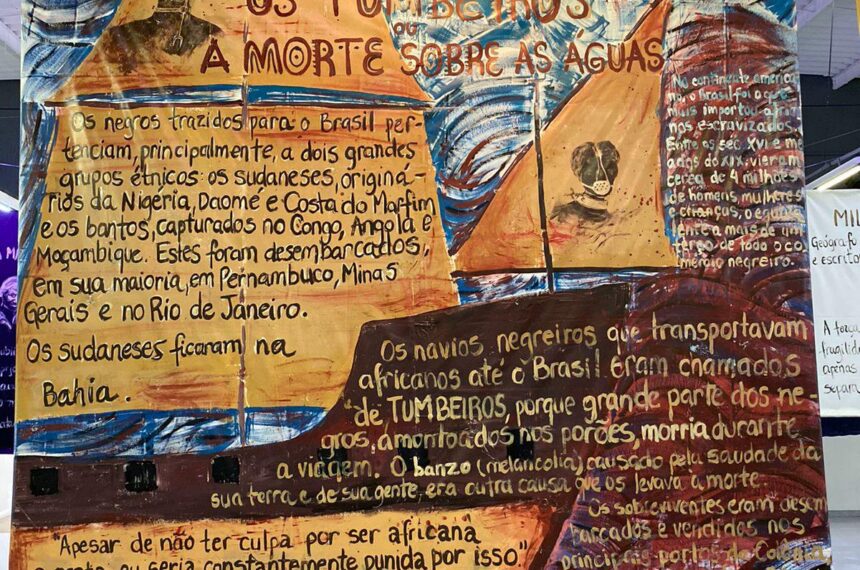 OS TUMBEIROS
ou
A MORTE SOBRE AS ÁGUAS
Os negros trazidos para o Brasil per-
tenciam, principalmente, a dois grandes
grupos étnicos: os sudaneses, originá-
rios da Nigéria, Daomé e Costa do Marfim
e os bantos, capturados no Congo, Angola e
Moçambique. Estes foram desembarcados,
em sua maioria, em Pernambuco, Minas
Gerais e no Rio de Janeiro.
Os sudaneses ficaram na
Bahia.
No continente america
no, o Brasil foi o
mais importou africa
nos escravizados.
Entre os séc XVI e me
ados do XIX, vieram
cerca de 4 milhões
de homens, mulheres
e crianças, o equiva
lente a mais de um
terço de todo o co
mércio negreiro.
Os navios negreiros que transportavam
africanos até o Brasil eram chamados
de TUMBEIROS, porque grande parte dos ne-
gros, amontoados nos porões, morria durante
a viagem. O banzo (melancolia) causado pela saudade da
sua terra e de sua gente, era outra causa que os levava à morte.
Os sobreviventes eram desem
barcados e vendidos nos
principais portos da
"Apesar de não ter culpa por ser africana
ou seria constantemente punida por isso."
MIL
Geógrafo
e escrito
A força
fragilid
apenas
separ